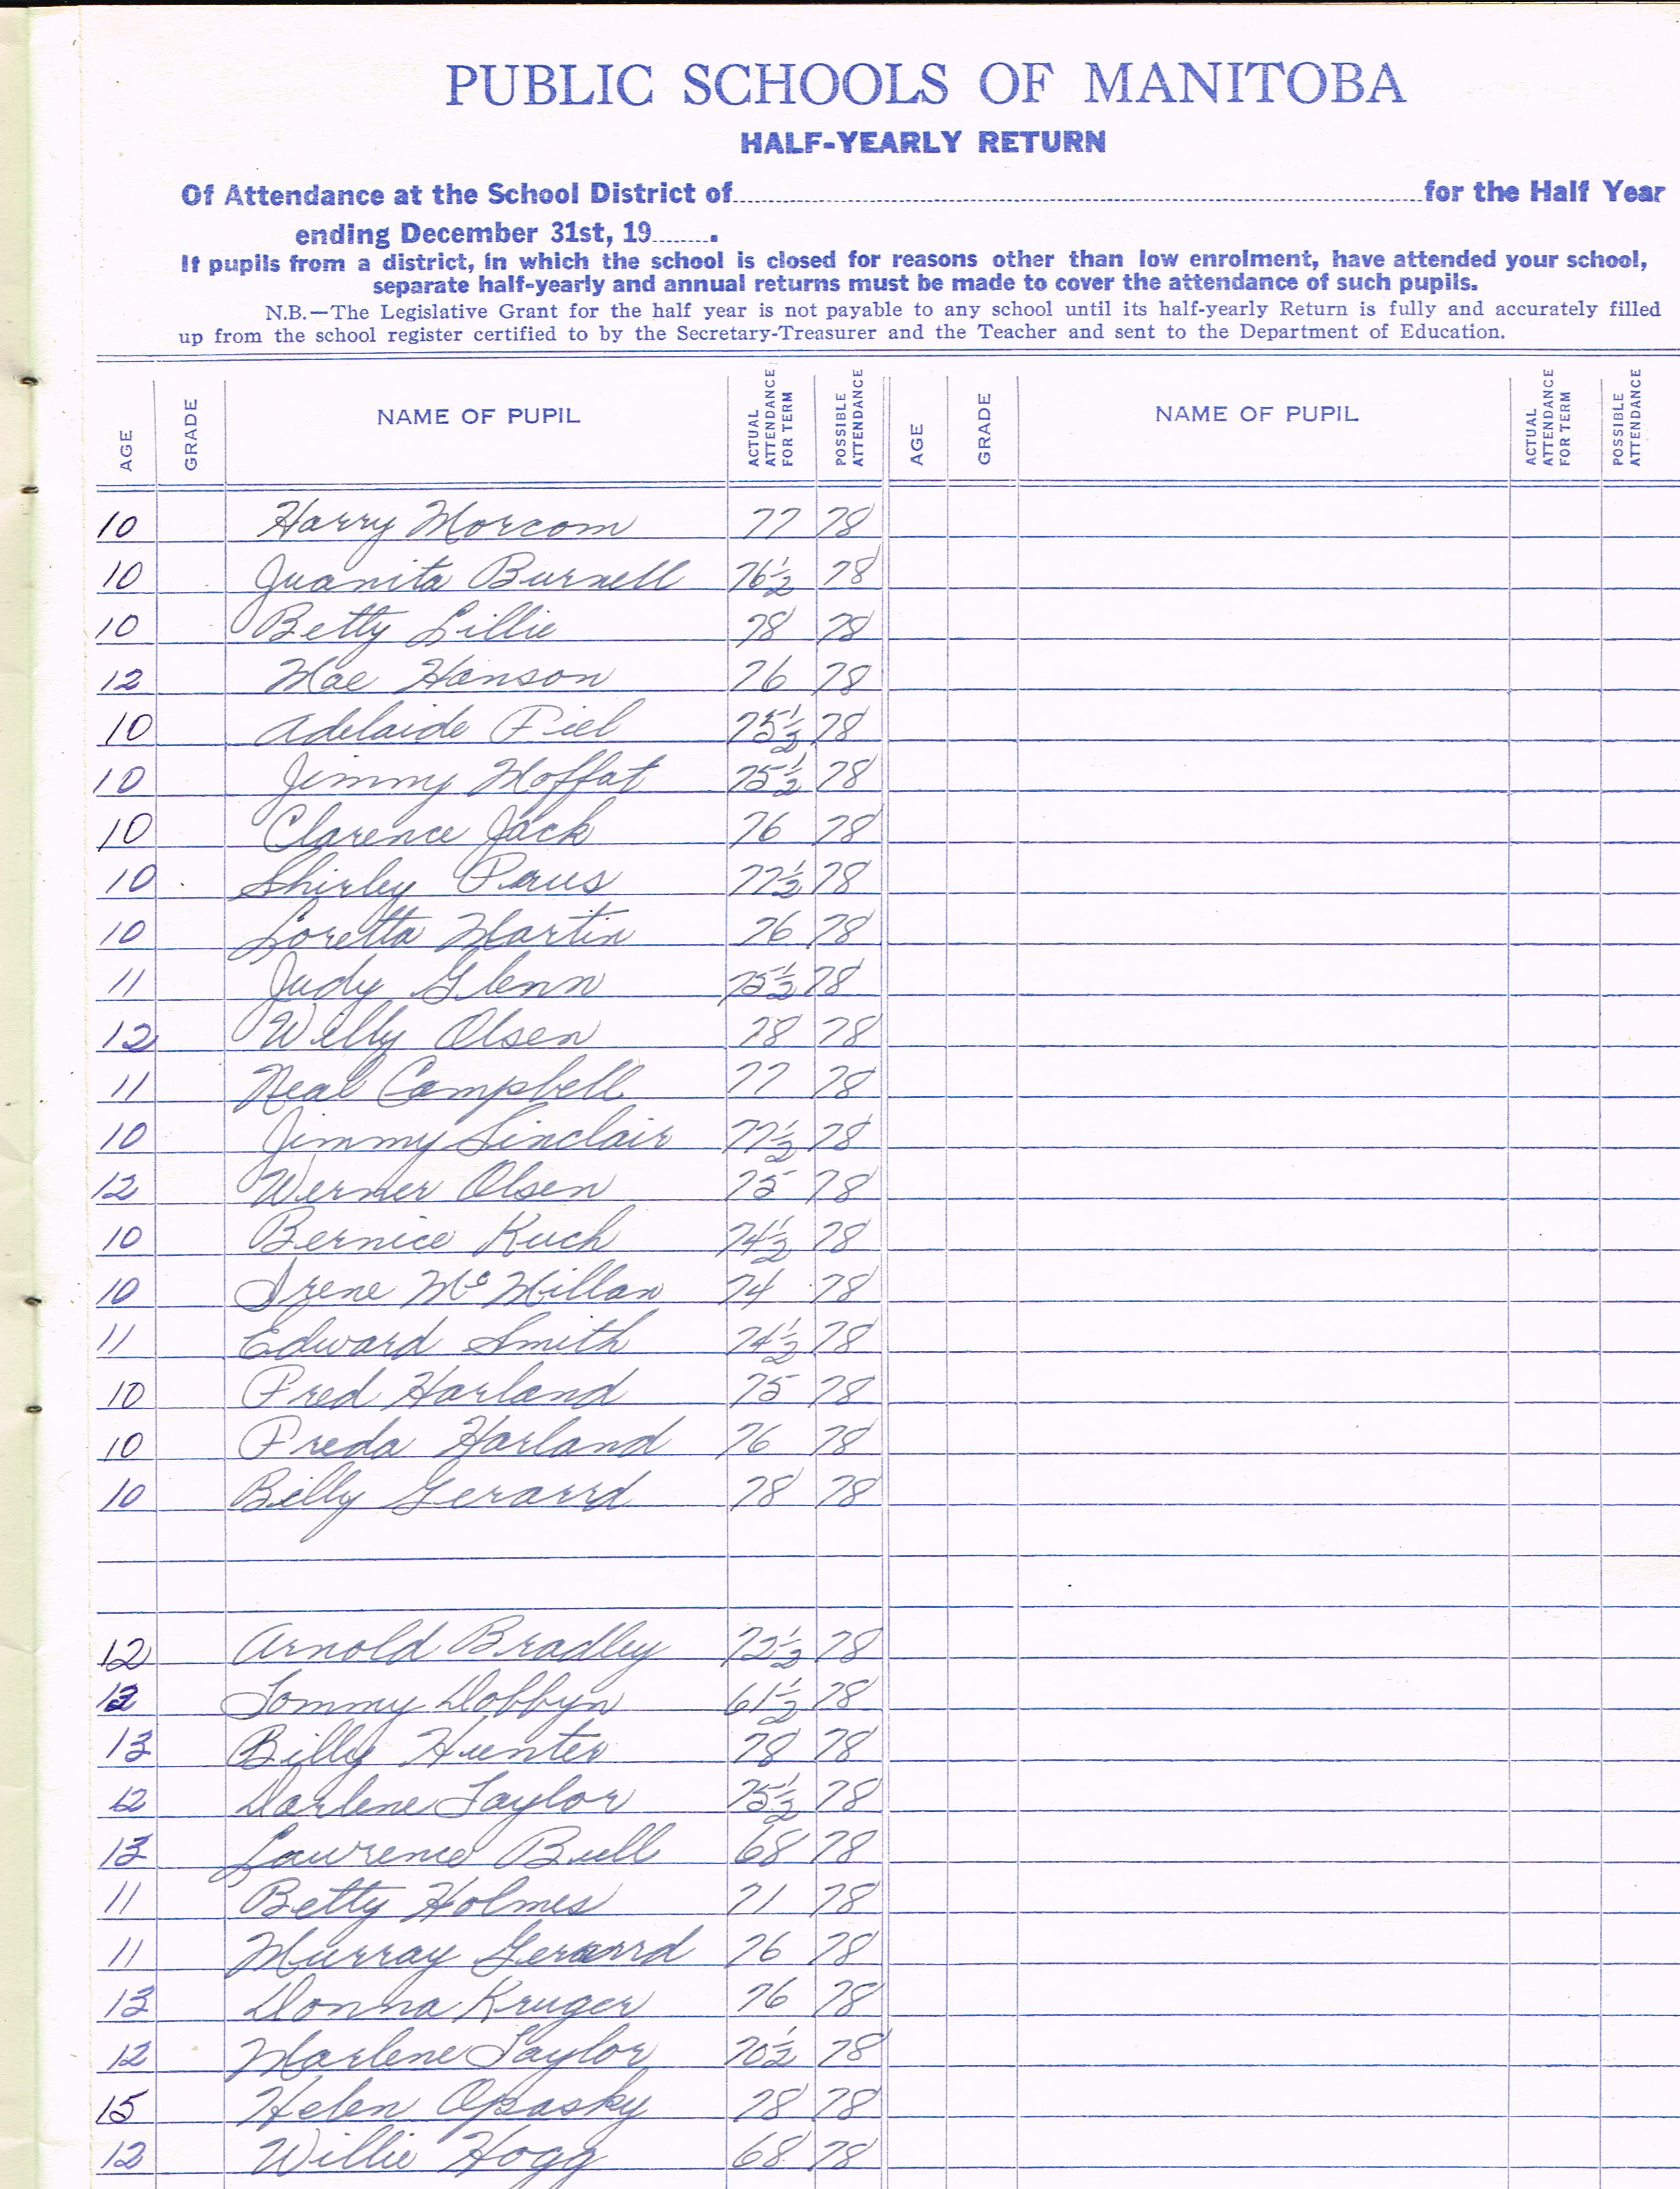 PUBLIC SCHOOLS OF MANITOBA
HALF-YEARLY RETURN
Of Attendance at the School District of for the Half Year
ending December 31st, 19 .
If pupils from a district, in which the school is closed for reasons other than low enrolment, have attended your school,
separate half-yearly and annual returns must be made to cover the attendance of such pupils.
N.B.—The Legislative Grant for the half year is not payable to any school until its half-yearly Return is fully and accurately filled
up from the school register certified to by the Secretary-Treasurer and the Teacher and sent to the Department of Education.
AGE GRADE NAME OF PUPIL ACTUAL ATTENDANCE FOR TERM POSSIBLE ATTENDANCE AGE GRADE NAME OF PUPIL ACTUAL ATTENDANCE FOR TERM POSSIBLE ATTENDANCE
10 Harry Morcom 77 78
10 Juanita Burnell 76½ 78
10 Betty Lillie 78 78
12 Mae Hanson 76 78
10 Adelaide Fiel 75½ 78
10 Jimmy Moffat 75½ 78
10 Clarence Jack 76 78
10 Shirley Paus 77½ 78
10 Loretta Martin 76 78
11 Judy Glenn 75½ 78
12 Willy Olsen 78 78
11 Neal Campbell 77 78
10 Jimmy Sinclair 77½ 78
12 Werner Olsen 75 78
10 Bernice Kuch 74½ 78
10 Irene McMillan 74 78
11 Edward Smith 74½ 78
10 Fred Harland 75 78
10 Freda Harland 76 78
10 Billy Gerard 78 78
12 Arnold Bradley 72½ 78
12 Tommy Dobbyn 61½ 78
13 Billy Hunter 78 78
12 Darlene Taylor 75½ 78
13 Lawrence Bull 68 78
11 Betty Holmes 71 78
11 Murray Gerard 76 78
13 Donna Kruger 76 78
12 Marlene Taylor 70½ 78
15 Helen Opasky 78 78
12 Willie Hogg 68 78